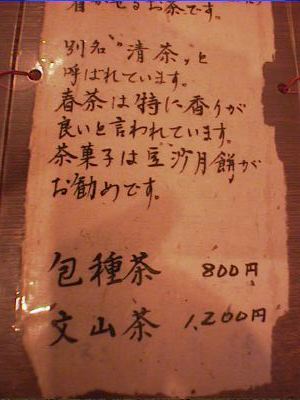 着かせるお茶です。
別名"清茶"と
呼ばれています。
春茶は特に香りが
良いと言われています。
茶菓子は豆沙月餅が
お勧めです。
包種茶 800円
文山茶 1,200円